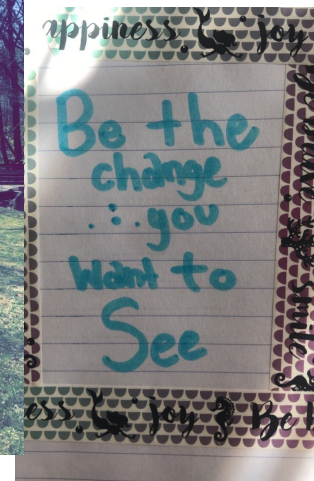 appiness. joy
Be the
change
.:. you
want to
See
smile
ess. joy Be